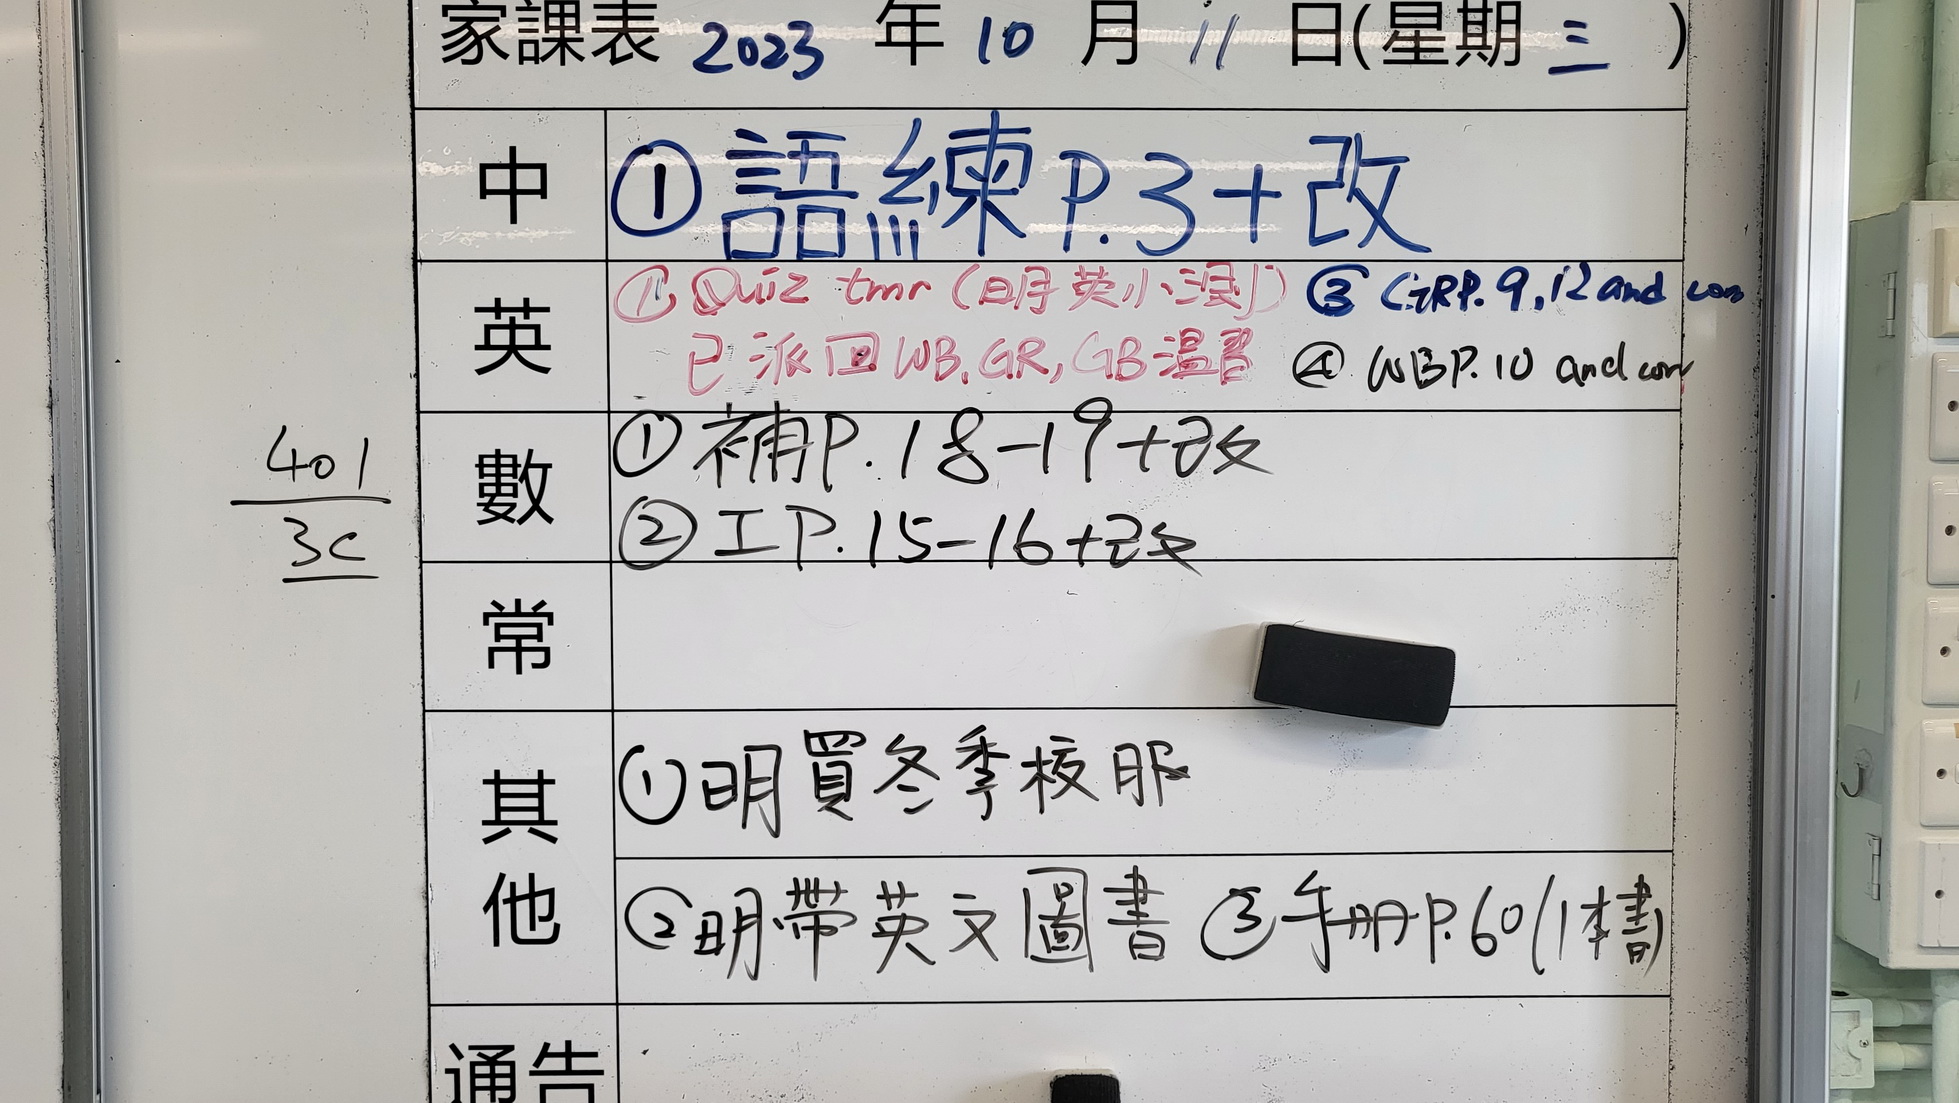 家課表 2023 年 10 月 11 日(星期 三 )
中 ① 語練 P.3 + 改
英 ① Quiz tmr (明英小測) ③ GR P. 9, 12 and corr
已派回 WB, GR, GB 溫習 ④ WB P. 10 and corr
數 ① 補 P. 18-19 + 改
② 工 P. 15-16 + 改
401
3C
常
其他 ① 明買冬季校服
② 明帶英文圖書 ③ 手冊 P. 60 (1本書)
通告